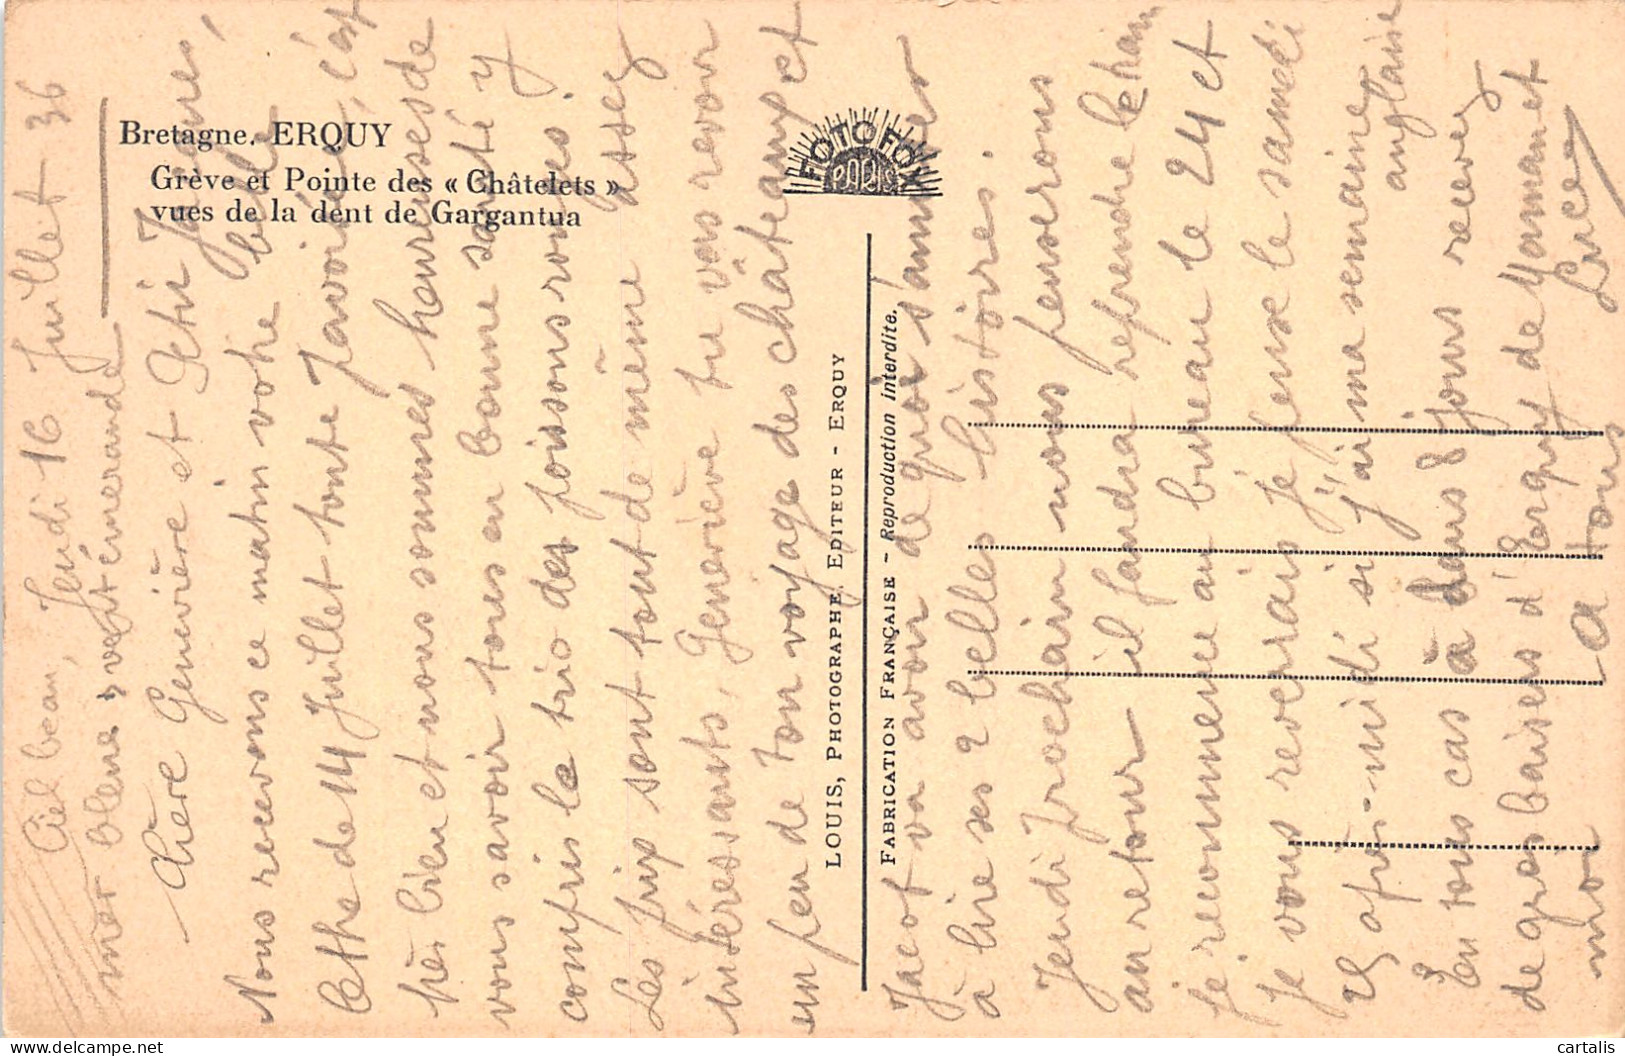 Bretagne. ERQUY
Grève et Pointe des « Châtelets »
vues de la dent de Gargantua
FOTOFOX
PARIS
LOUIS, PHOTOGRAPHE, EDITEUR - ERQUY
FABRICATION FRANÇAISE - Reproduction interdite.
Jeudi 16 Juillet 36
Ciel beau,
mer bleue, vert émeraude
Chère Geneviève et Petit Jacques,
Nous recevons ce matin votre belle
lettre du 14 Juillet toute pavoisée, c'est
très bien et nous sommes heureuses de
vous savoir tous en bonne santé y
compris le trio des poissons rouges.
Les sont tout de même assez
intéressants, Geneviève tu vas revoir
un peu de ton voyage des châteaux et
Jacot va avoir de quoi s'amuser
à lire ses 2 belles histoires.
Jeudi prochain nous penserons
au retour il faudra reprendre le train
je recommence au bureau le 24 et
Je vous reverrais je pense le samedi
25 après-midi si j'ai ma semaine
anglaise
En tous cas à dans 8 jours recevez
de gros baisers d'Erquy de Maman et
moi
a tous
Luce
cartalis